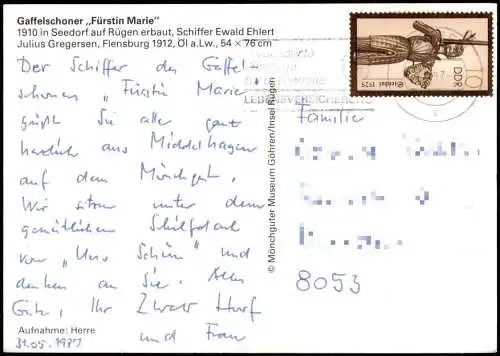 Gaffelschoner „Fürstin Marie"
1910 in Seedorf auf Rügen erbaut, Schiffer Ewald Ehlert
Julius Gregersen, Flensburg 1912, Öl a.Lw., 54 × 76 cm
Der Schiffer des Gaffel
schoners „Fürstin Marie
grüßt Sie alle ganz
herzlich aus Middelhagen
auf dem Mönchgut.
Wir sitzen unter dem
gemütlichen Schilfdach
von „Uns Schün" und
denken an Sie. Alles
Gute, Ihr
und Frau
Aufnahme: Herre
31.05.1987
© Mönchguter Museum Göhren/Insel Rügen
LEBENSVERSICHERUNG
DDR
1925
Familie
8053